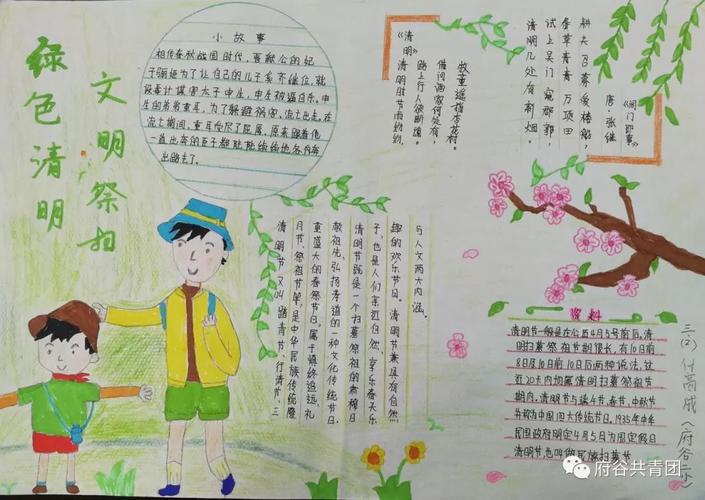 绿色清明
文明祭扫
小故事
相传春秋战国时代,晋献公的妃
子骊姬为了让自己的儿子奚齐继位,就
设毒计谋害太子申生,申生被逼自杀。申
生的弟弟重耳,为了躲避祸害,流亡出走。在
流亡期间,重耳受尽了屈辱。原来跟着他
一道出奔的臣子都陆陆续续地各内奔
出路去了。
《清明》
清明时节雨纷纷,
路上行人欲断魂。
借问酒家何处有,
牧童遥指杏花村。
《阊门即事》
唐·张继
耕夫召募爱楼船,
春草青青万项田;
试上吴门窥郡郭,
清明几处有新烟。
清明节又叫踏青节、行清节、三
月节、祭祖节等,是中华民族传统隆
重盛大的春祭节日,属于慎终追远、礼
敬祖先、弘扬孝道的一种文化传统节日。
清明节既是一个扫墓祭祖的肃穆日
子,也是人们亲近自然、享乐春天乐
趣的欢乐节日。清明节兼具有自然
与人文两大内涵。
资料
清明节一般是在公历4月5号前后,清
明扫墓祭祖节期很长,有10日前
8日及10日前10日后两种说法,这
近20天内均属清明扫墓祭祖节
期内。清明节与端午节、春节、中秋节
并称为中国四大传统节日。1935年中华
民国政府明定4月5日为国定假日
清明节,也叫做民族扫墓节
三(2)付高成(府谷二小)
府谷共青团